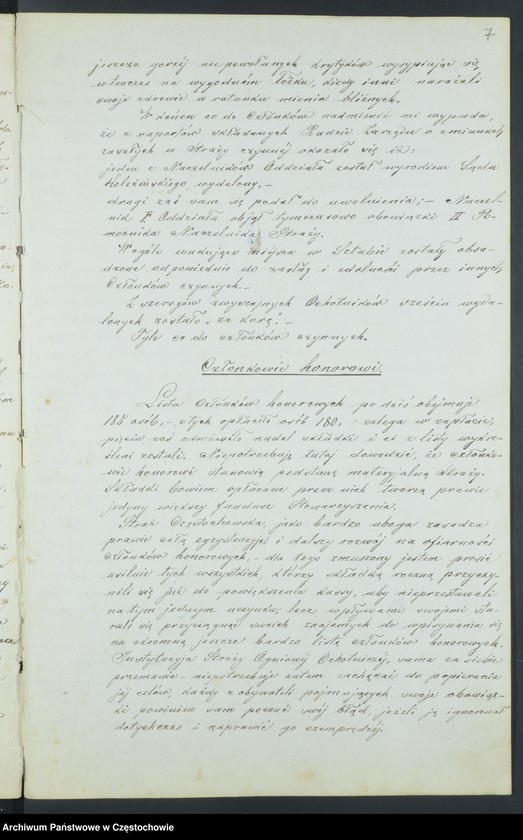 7
jeszcze gorzéj niepowołanych krytyków wysypiając się
wtenczas na wygodném łóżku, kiedy inni narażali
swoje zdrowie w ratunku mienia bliźnich.
W końcu co do członków nadmienić mi wypada,
że z raportów składanych Radzie Zarządu o zmianach
zaszłych w Straży czynnéj okazało się iż:
jeden z Naczelników Oddziału został wyrokiem Sądu
Koleżeńskiego wydalony, –
drugi zaś sam się podał do uwolnienia; – Naczel-
nik I Oddziału objął tymczasowo obowiązki II Po-
mocnika Naczelnika Straży.
Wogóle wakujące miejsca w Sztabie zostały obsa-
dzone odpowiednio do zasług i zdolności przez innych
Członków czynnych. –
Z szeregów zwyczajnych Ochotników sześciu wyda-
lonych zostało "za karę". –
Tyle co do członków czynnych.
Członkowie honorowi.
Lista członków honorowych po dziś obejmuje
185 osób, – z tych opłaciło osób 180, zalega w zapłacie,
pięciu zaś odmówiło nadal składki i ci z listy wykre-
śleni zostali. Niepotrzebuję tutaj dowodzić, że członko-
wie honorowi stanowią podstawę materyjalną Straży.
Składki bowiem opłacane przez nich tworzą prawie
jedyny większy fundusz Stowarzyszenia.
Straż Częstochowska jako bardzo uboga zasadza
prawie całą egzystencyję i dalszy rozwój na ofiarności
członków honorowych, – dla tego zmuszony jestem prosić
usilnie tych wszystkich, którzy składką roczną przyczy-
nili się już do powiększenia kassy, aby nieprzestawali
na tym jednym uczynku, lecz wpływami swojemi sta-
rali się przyciągnąć swoich znajomych do wpisywania się
na skromną jeszcze bardzo listę członków honorowych.
Instytucyja Straży Ogniowéj Ochotniczéj, sama za siebie
przemawia – niepotrzebuję zatem zachęcać do popierania
jéj celów, każdy z obywateli pojmujących swoje obowiąz-
ki powinien sam poczuć swój błąd, jeżeli ją ignorował
dotychczas i naprawić go czemprędzéj.
Archiwum Państwowe w Częstochowie